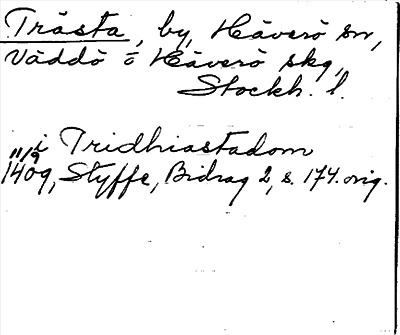 Trästa, by, Häverö sn,
Väddö o Häverö skg,
Stockh. l.
i Tridhiastadom
11/9 1409, Styffe, Bidrag 2, s. 174. orig.